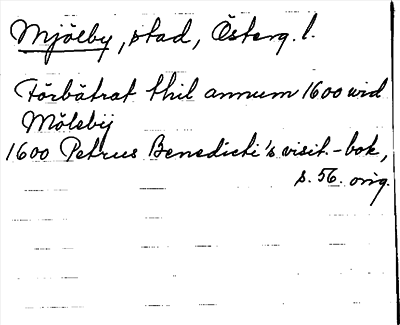 Mjölby, stad, Österg. l.
Förbätrat thil annum 1600 wid
Mölebij
1600 Petrus Benedicti's visit.-bok,
s. 56. orig.